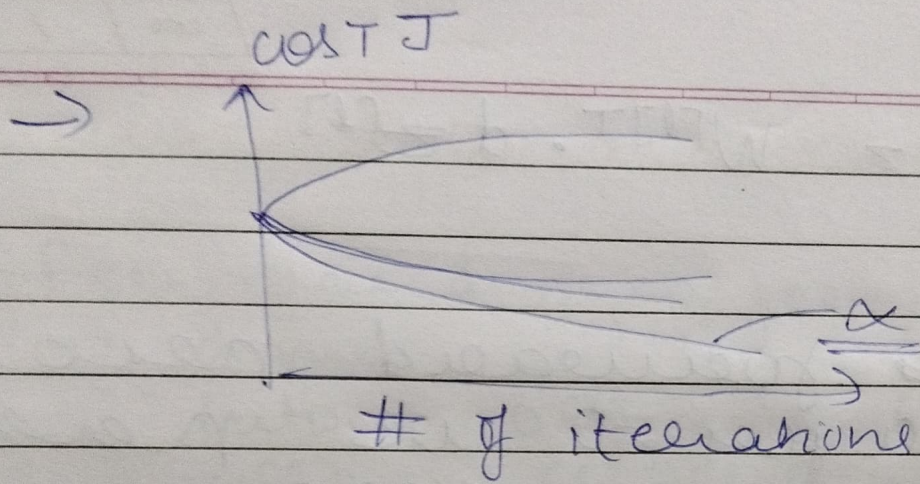 COST J
→
α
# of iterations